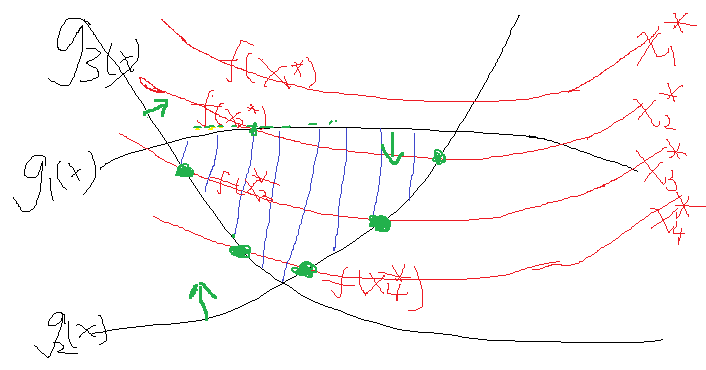 g3(x)
f(x1*)
x1*
f(x2*)
x2*
g1(x)
f(x3*)
x3*
x4*
f(x4*)
g2(x)